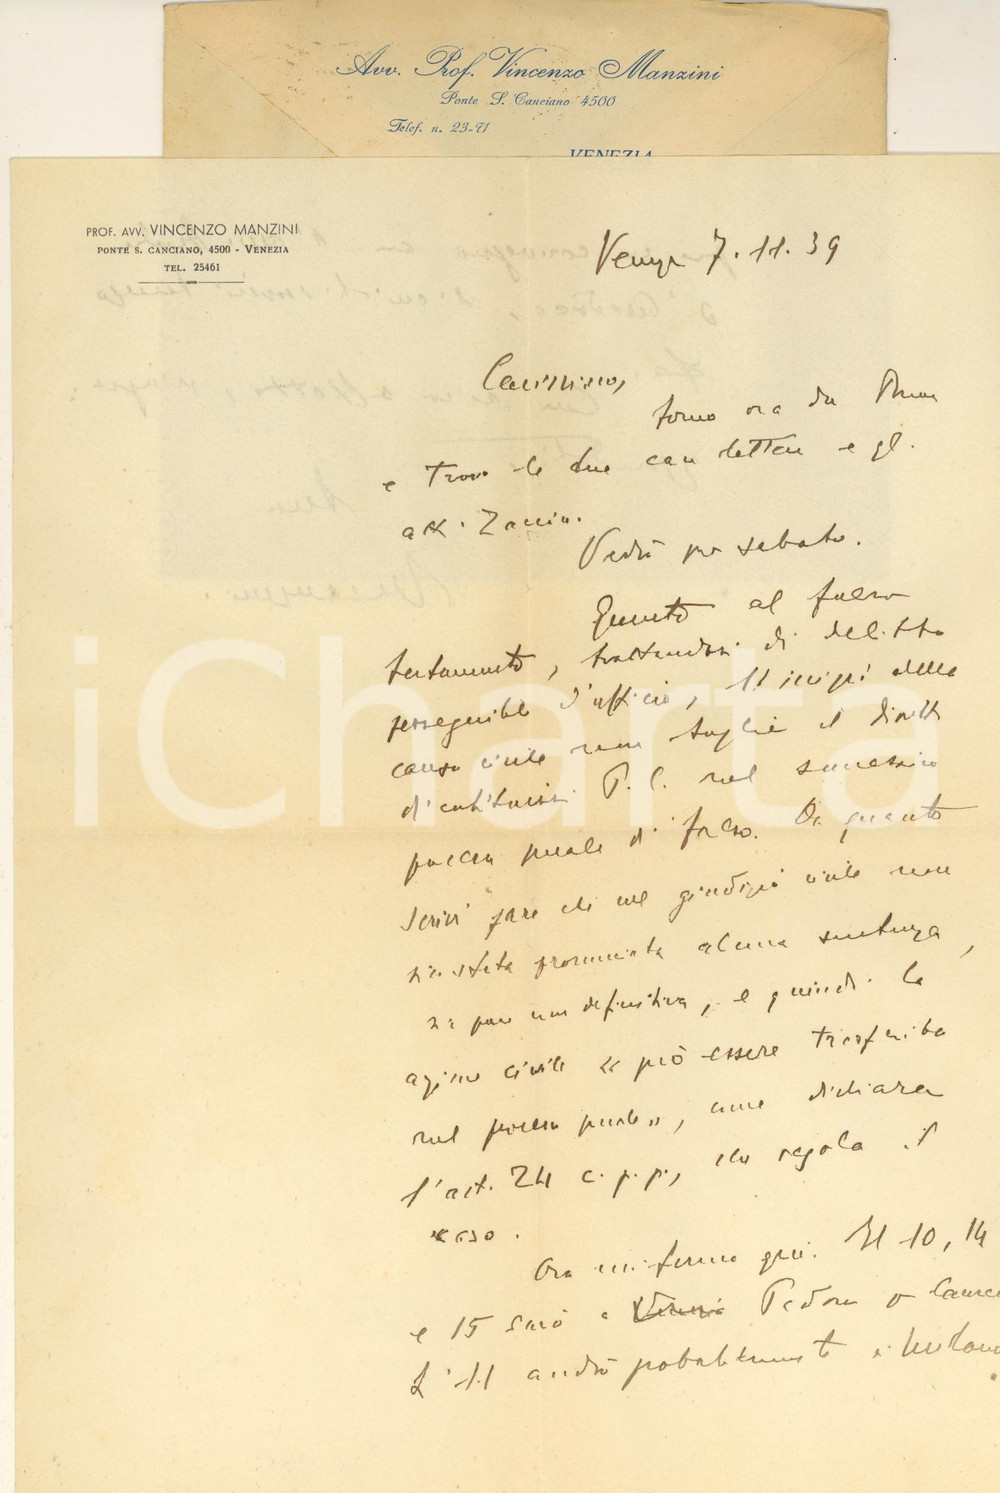 Avv. Prof. Vincenzo Manzini
Ponte S. Canciano 4500
Telef. n. 23-71
VENEZIA
PROF. AVV. VINCENZO MANZINI
PONTE S. CANCIANO, 4500 - VENEZIA
TEL. 25461
Venezia 7.11.39
Carissimo,
torno ora da Roma
e trovo le due care lettere e gl.
atti Zaccin.
Vedrò per sabato.
Quanto al falso
testamento, trattandosi di delitto
perseguibile d'ufficio, l'inizio della
causa civile non toglie il diritto
di costituirsi P. C. nel successivo
processo penale di falso. Da quanto
scrivi pare che nel giudizio civile non
sia stata pronunciata alcuna sentenza,
sia pure non definitiva, e quindi la
azione civile « può essere trasferita
nel processo penale », come dichiara
l'art. 24 c.p.p., che regola il
caso.
Ora mi fermo qui. Il 10, 14
e 15 sarò a Padova
L'11 andrò probabilmente a Milano
iCharta